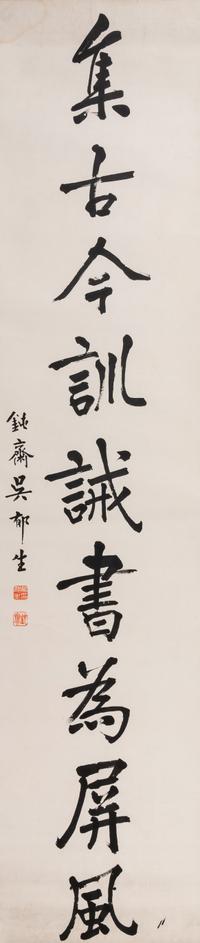 集古今訓誡書為屏風
鈍齋吳郁生